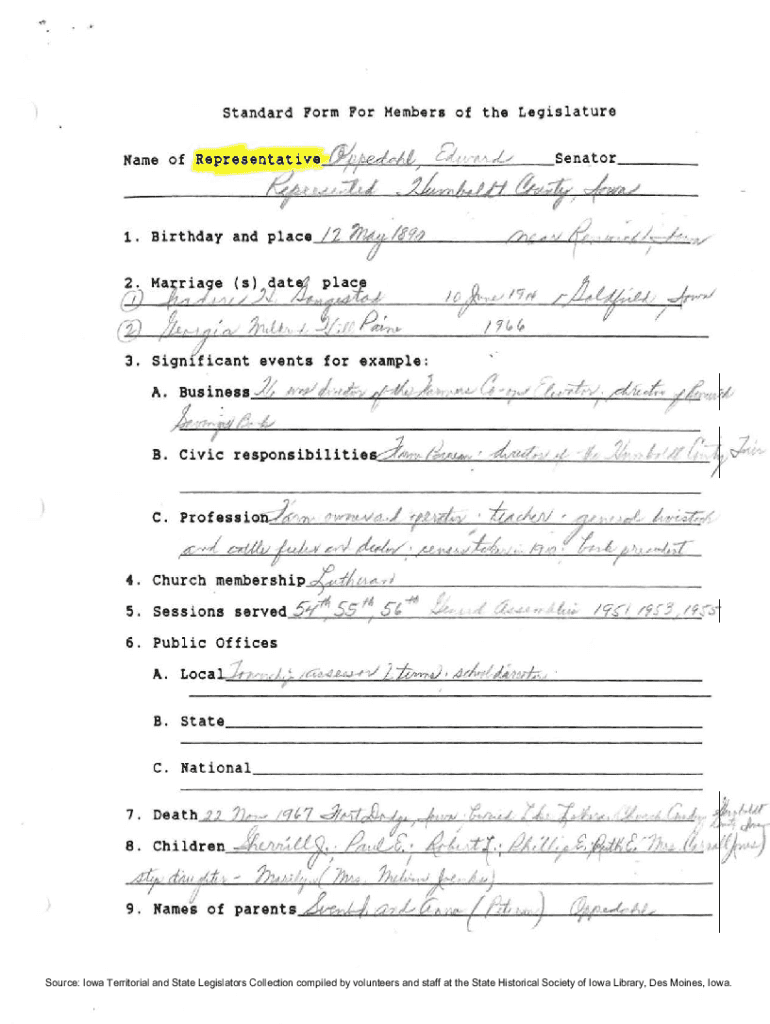 Standard Form For Members of the Legislature
Name of Representative Oppedahl, Edward Senator
Represented Humboldt County, Iowa
1. Birthday and place 12 May 1890 near Renwick, Iowa
2. Marriage (s) date, place
① 10 June 1914 Goldfield, Iowa
② Georgia Hill Paine 1966
3. Significant events for example:
A. Business He was director of the Farmers Co-op Elevator; director of Renwick
Savings Bank
B. Civic responsibilities Farm Bureau; director of the Humboldt County Fair
C. Profession Farm owner and operator; teacher; general livestock
and cattle feeder and dealer; census taker in bank president
4. Church membership Lutheran
5. Sessions served 54th, 55th, 56th General Assemblies 1951, 1953, 1955
6. Public Offices
A. Local Township assessor 2 terms; school director
B. State
C. National
7. Death 22 Nov 1967 Fort Dodge, Iowa; buried Lutheran Church Humboldt
8. Children Sherrill J.; Paul E.; Robert L.; Phillip E; Ruth E. (Mrs.
step daughter - Marilyn (Mrs. Melvin
9. Names of parents and Anna (Peterson) Oppedahl
Source: Iowa Territorial and State Legislators Collection compiled by volunteers and staff at the State Historical Society of Iowa Library, Des Moines, Iowa.